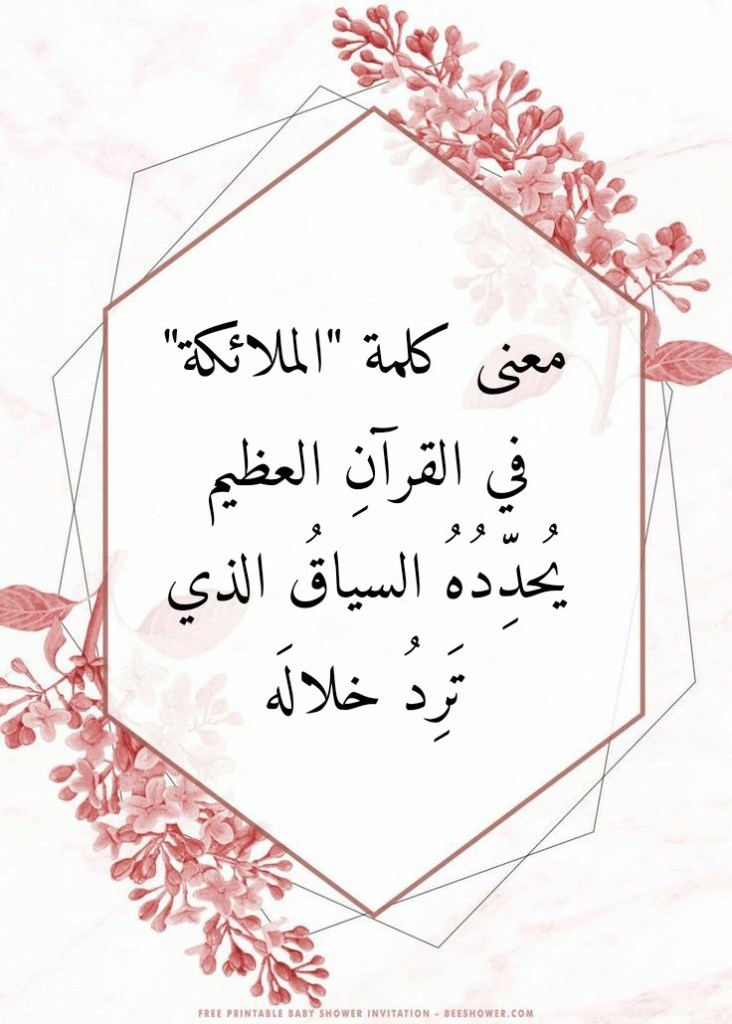 معنى كلمة "الملائكة"
في القرآنِ العظيم
يُحدِّدُهُ السياقُ الذي
تَرِدُ خلالَه
FREE PRINTABLE BABY SHOWER INVITATION - BEESHOWER.COM